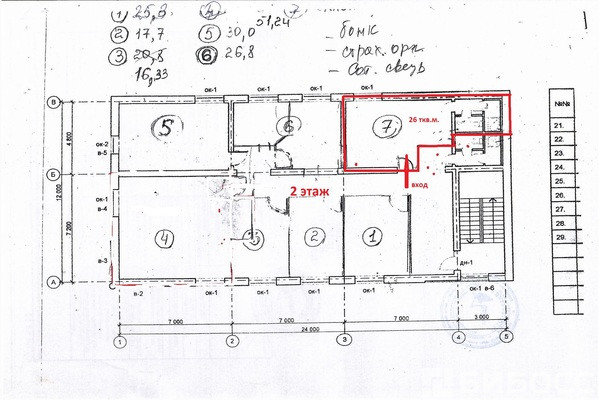 ① 25,3 ④ ⑦
51,24
② 17,7 ⑤ 30,0 – банк
③ 20,8 ⑥ 26,8 – страх. орг.
16,33 – Сот. связь
ок-1 ок-1 ок-1 ок-1
В
5 6 7 26 ткв.м.
№№
4 800
ок-2
в-5
21.
22.
23.
24.
25.
26.
27.
28.
29.
Б
12 000
ок-1
в-4
2 этаж
вход
7 200
4 3 2 1
в-3
дн-1
А
в-2 ок-1 ок-1 ок-1 ок-1 ок-1 в-6
7 000 7 000 7 000 3 000
24 000
1 2 3 4 5